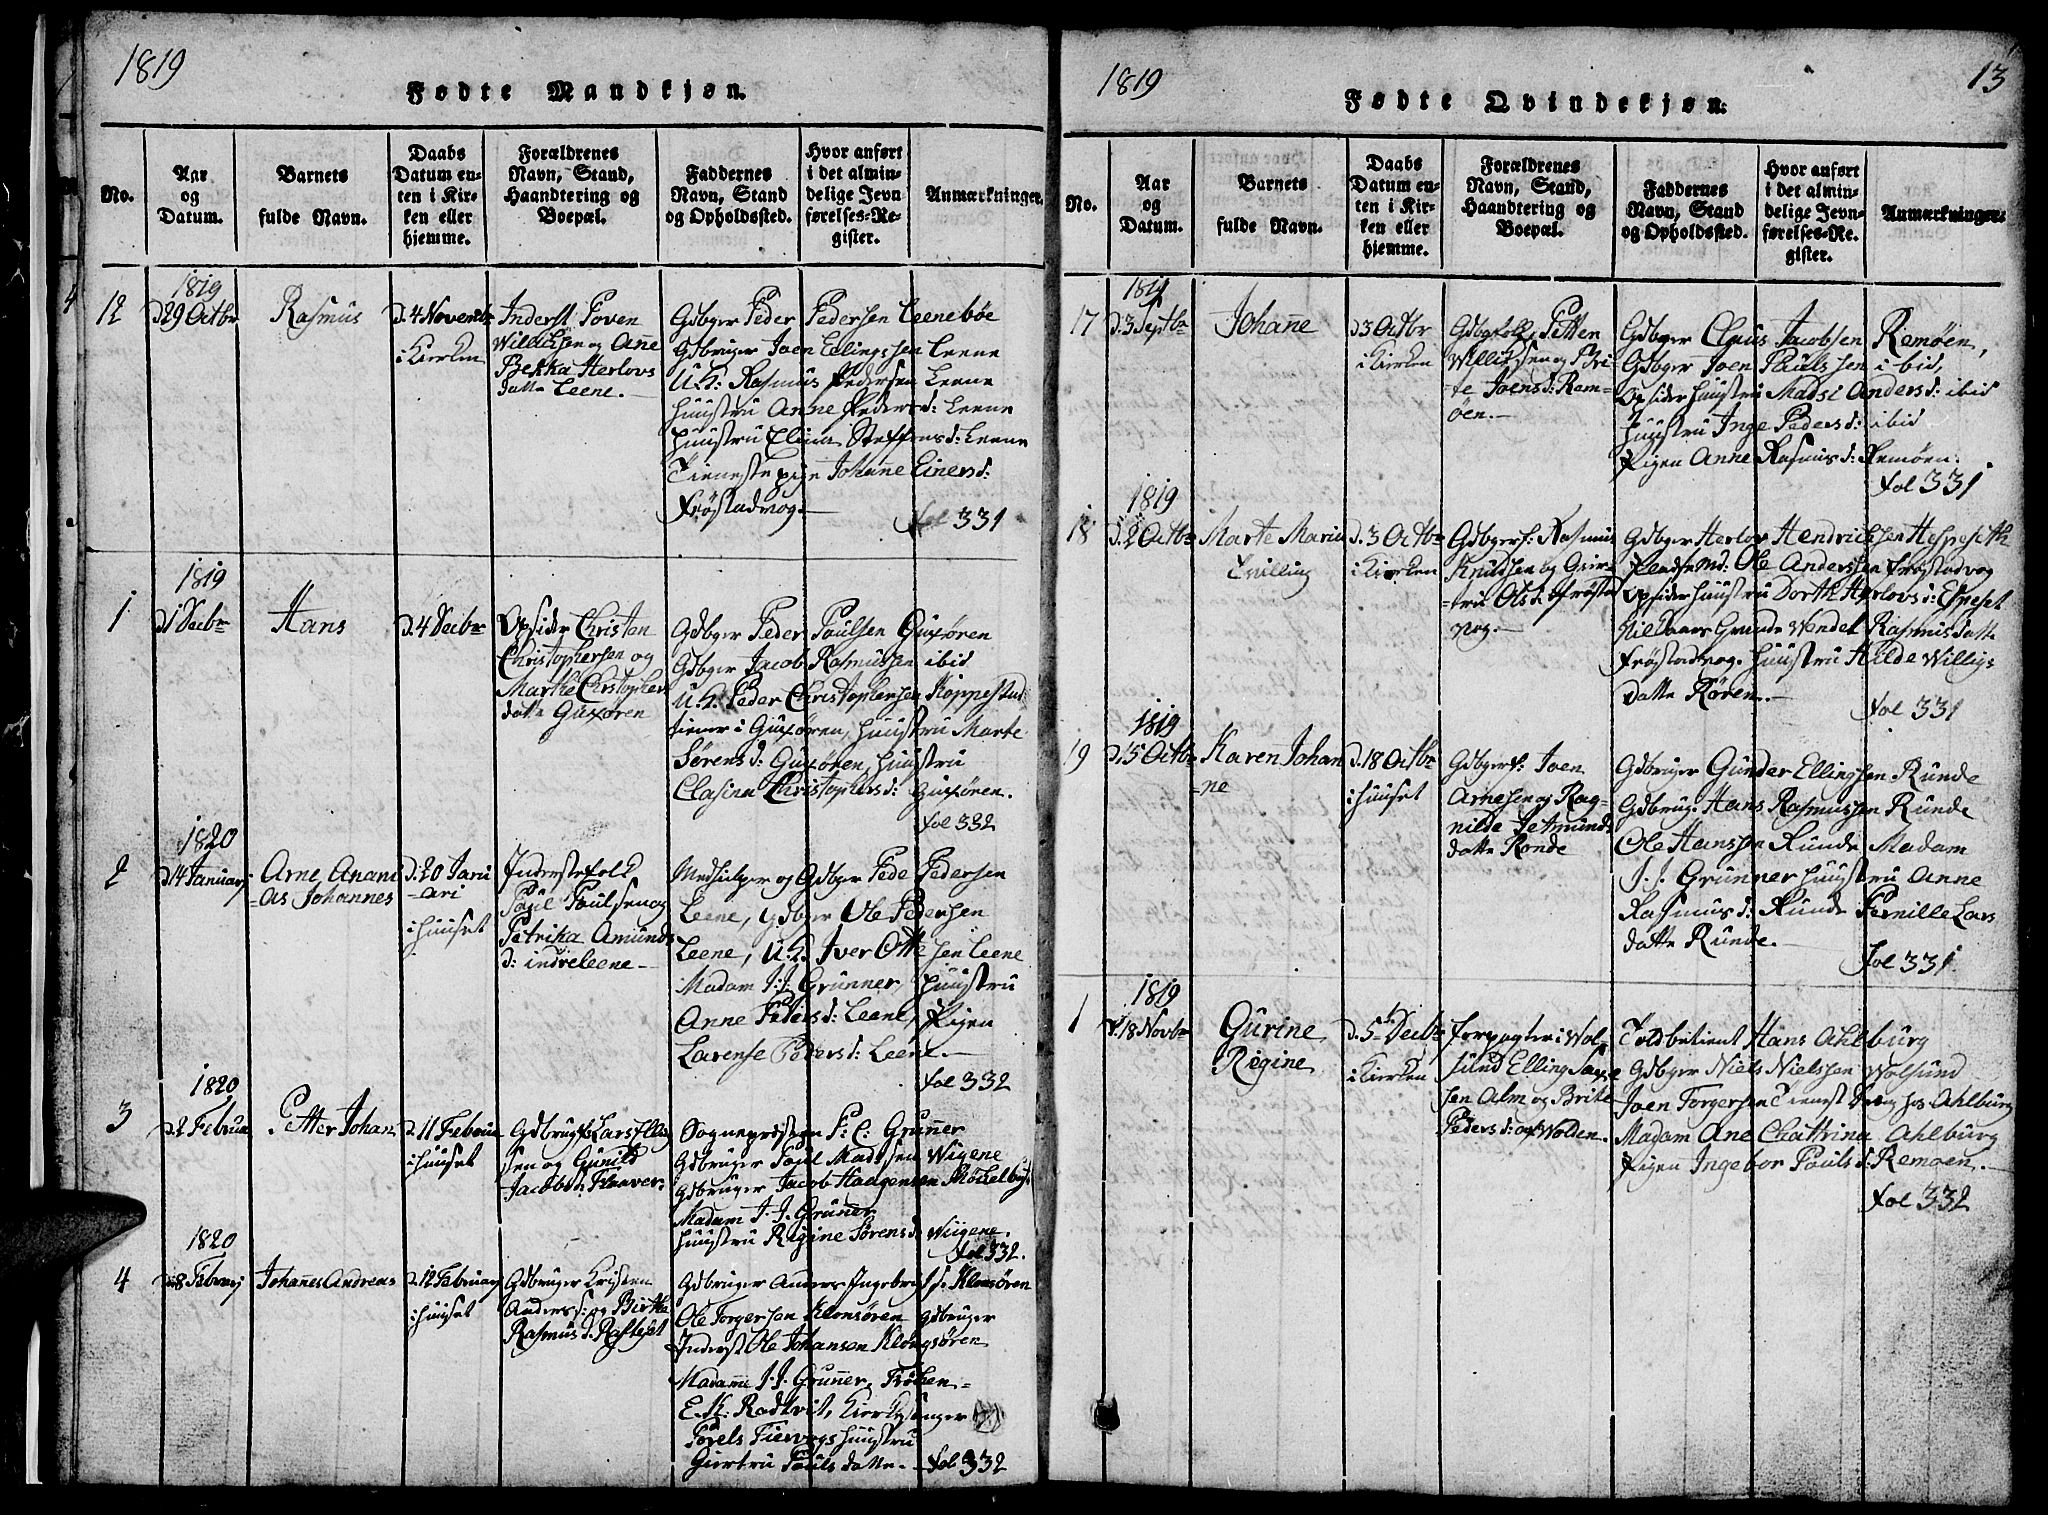 1819
Fødte Mandkjøn.
No.
Aar
og
Datum.
Barnets
fulde Navn.
Daabs
Datum en-
ten i Kir-
ken eller
hjemme.
Forældrenes
Navn, Stand,
Haandtering og
Boepæl.
Faddernes
Navn, Stand
og Opholdssted.
Hvor anført
i det almin-
delige Jevn
førelses-Re-
gister.
Anmærkninger.
12
1819
d29 Octbr
Rasmus
d. 4 Novembr
i Kierken
Inderst Poven
Willichsen og Anne
Bekka Herlovs
datte Leene.
Gdbger Peder Pedersen Leenebøe
Gdbruger Joen Ellingssen Leene
U.K: Rasmus Pedersen Leene
Huustru Anne Peders d: Leene
Huustru Elina Steffens d: Leene
Tieneste pige Johanne Einers d:
Frøstadvog.
Fol 331
1
1819
d1 Decbr
Hans
d. 4 Decbr
Opsider Christen
Christophersen og
Marthe Christopher
datte Guxøren
Gdbger Peder Paulsen Guxøren
Gdbger Jacob Rasmussen ibid
U.K. Peder Christophersen Koppestad
tiener i Guxøren, Huustru Marte
Sørens d: Guxøren, Huustru
Clasina Christophers d: Guxøren.
Fol 332
2
1820
d14 Januarj
Arne Anani
as Johannes
d. 20 Janu
ari
i Huuset
Inderstefolk
Poul Poulsen og
Petrika Amunds
d: indreleene
Medhielper og Gdbger Pede Pedersen
Leene, Gdbger Ole Pedersen
Leene, U.K. Iver Ottesen Leene
Madam J.J. Grunner, Huustru
Anne Peders d: Leene, Pigen
Larense Peders d: Leene.
Fol 332
3
1820
d2 Februa
Petter Johan
d. 11 Februa
i Huuset
Gdbrugf. Lars Ellas
sen og Gunild
Jacobs d: Fraaver.
Sogneprest F: C: Gruner
Gdbruger Poul Madssen Wigene
Gdbruger Jacob Haagensen Møkelbyst
Madam J. J. Gruner
Huustru Regine Sørens d. Wiigene.
Fol 332.
4
1820
d8 Februarj
Johanes Andreas
d. 12 Februarj
i Huuset
Gdbruger Kristen
Anders s: og Birthe
Rasmus d. Rafteset
Gdbruger Anders Ingebrigt s: Klonsøren
Ole Torgersen Klonsøren Gdbruger
Inderst Ole Johansen Klongsøren
Madame J. J. Gruner, Frøken
E. K. Radkvit, Kierkesanger
Povels Huustru
Giertru Pouls datte.
Fol 332
1819
13
Fødte Qvindekjøn.
No.
Aar
og
Datum.
Barnets
fulde Navn.
Daabs
Datum en-
ten i Kir-
ken eller
hjemme.
Forældrenes
Navn, Stand,
Haandtering og
Boepæl.
Faddernes
Navn, Stand
og Opholdssted.
Hvor anført
i det almin-
delige Jevn-
førelses-Re-
gister.
Anmærkninger.
17
1819
d. 3 Septbr
Johanne
d 3 Octbr
i Kirken
Gdbgfolk, Petter
Willichsen og Bri-
te Joens d: Rem-
øen.
Gdbger Claus Jacobsen Remøen,
Gdbger Joen Paulssen ibid,
Opsider Huustru Madsi Anders d: ibid
Huustru Inge Peders d: ibid
Pigen Anne Rasmus d: Remøen.
Fol 331
18
1819
d. 2 Octbr
Marte Marie
Tvilling
d. 3 Octbr
i Kierken
Gdbgerf: Rasmus
Knudsen og Guir-
tru Ols d: Frøstad
vog.
Gdbger Herlov Hendrichsen Hespeseth
Ole Anderssen Frøstadvog
Opsider Huustru Dorth Herlovs d: Espeset
Wendel Rasmusdatte
Frøstadvog. Huustru Hilde Willigs
datte Røren.
Fol 331
19
1819
d. 15 Octbr
Karen Johan
ne
d. 18 Octbr
i Huuset
Gdbgerf: Joen
Arnesen og Rag-
nilde Jetmunds
datte Ronde
Gdbruger Gunder Ellingsen Runde
Gdbrug. Hans Rasmussen Runde
Ole Hanssen Runde Madam
J. J. Grunner Huustru Anne
Rasmus d: Runde Pernille Lars
datte Runde.
Fol 331.
1
1819
d. 18 Novbr
Gurine
Regine
d. 5 Decbr
i Kierken
Forpagter i Wol-
sund Elling Saxe
sen Alm og Brite
Peders d: af Wolden.
Toldbetient Hans Ahlburg
Gdbger Niels Nielssen Wolsund
Joen Torgersen Tieneste Dreng hos Ahlburg
Madam Ane Chattrina Ahlburg
Pigen Ingebor Pouls d: Remoen.
Fol 332